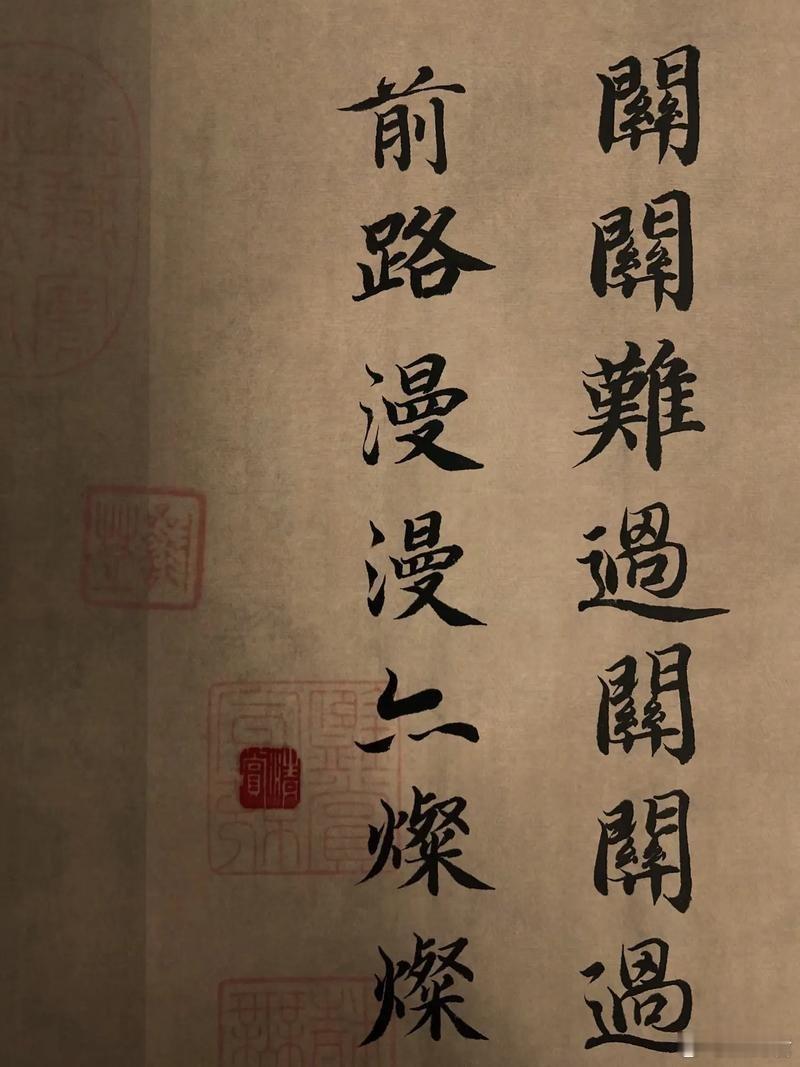 關關難過關關過
前路漫漫亦燦燦